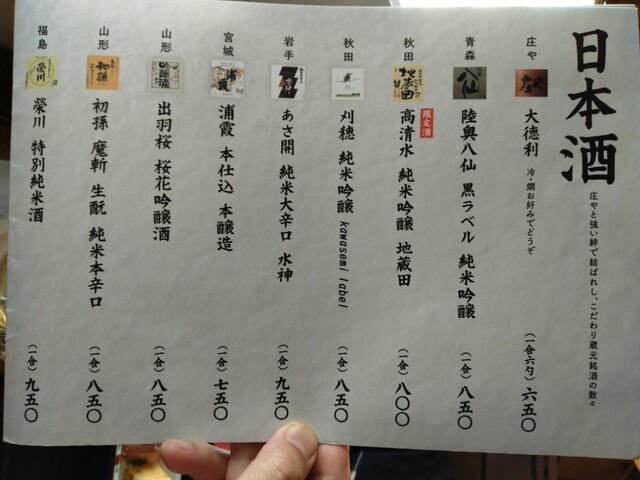 日本酒
庄やと強い絆で結ばれし、こだわり蔵元銘酒の数々
庄や
大徳利 冷・燗お好みでどうぞ
(一合六勺) 六五〇
青森
八仙
陸奥八仙 黒ラベル 純米吟醸
(一合) 八五〇
秋田
限定酒
高清水 純米吟醸 地蔵田
(一合) 八〇〇
秋田
刈穂 純米吟醸 kawasemi label
(一合) 八五〇
岩手
あさ開 純米大辛口 水神
(一合) 九五〇
宮城
浦霞
浦霞 本仕込 本醸造
(一合) 七五〇
山形
出羽桜 桜花吟醸酒
(一合) 八五〇
山形
初孫
初孫 魔斬 生酛 純米本辛口
(一合) 八五〇
福島
榮川
榮川 特別純米酒
(一合) 九五〇